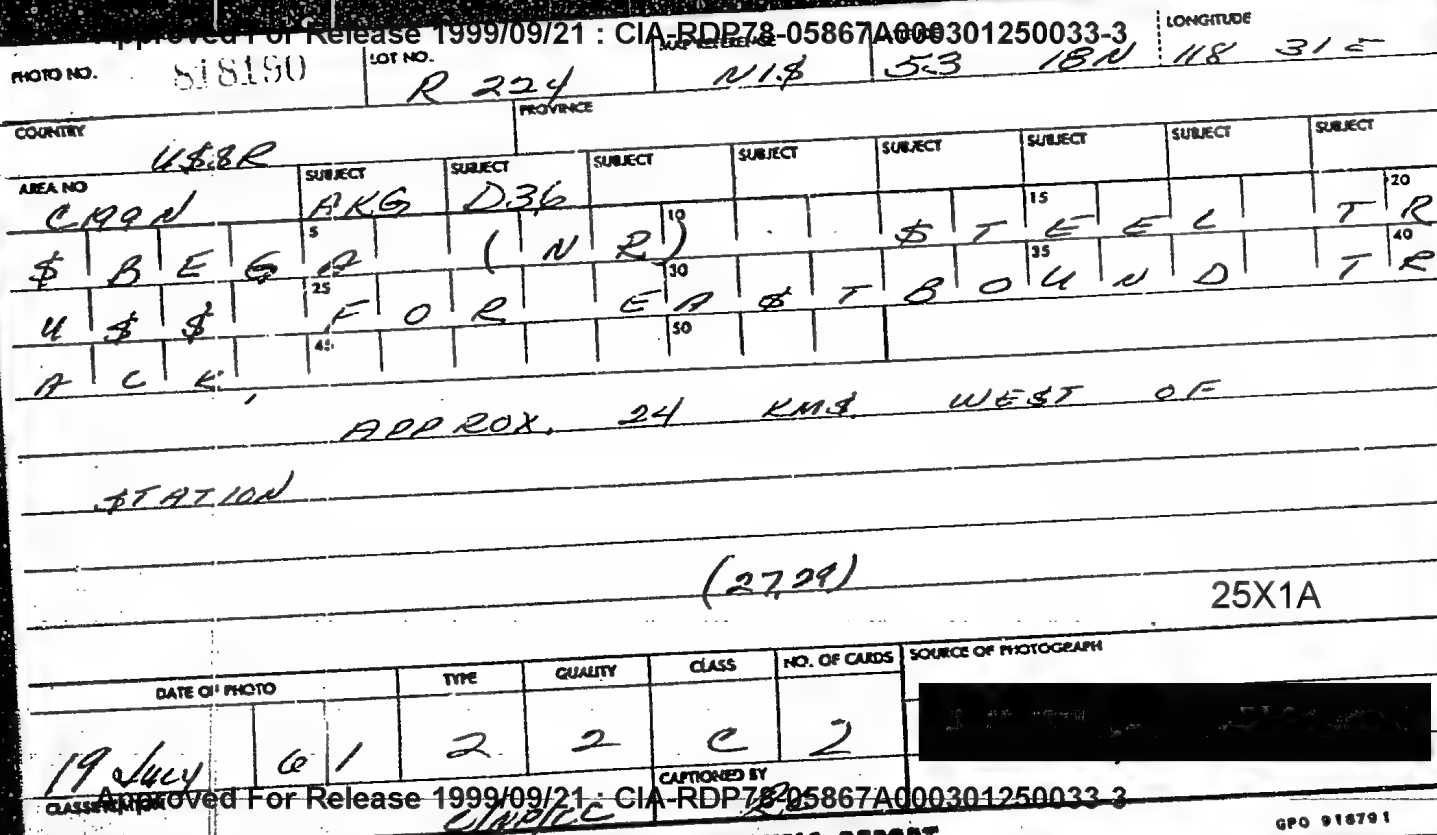 Approved For Release 1999/09/21 : CIA-RDP78-05867A000301250033-3
PHOTO NO. 818190 LOT NO. R 224 MAP REFERENCE NI$ 53 18N LONGITUDE 118 31 E
COUNTRY U$$R PROVINCE
AREA NO C199N SUBJECT AKG SUBJECT D36 SUBJECT SUBJECT SUBJECT SUBJECT SUBJECT SUBJECT
$BEGA (NR) . . $TEEL TR
5 10 15 20
U$$ FOR EA$TBOUND TR
25 30 35 40
ACK,
45 50
APPROX. 24 KM$ WE$T OF
$TATION
(27,29)
25X1A
DATE OF PHOTO TYPE QUALITY CLASS NO. OF CARDS SOURCE OF PHOTOGRAPH
19 July 61 2 2 C 2
CLASSIFICATION CAPTIONED BY
Approved For Release 1999/09/21 : CIA-RDP78-05867A000301250033-3
REPORT GPO 918791